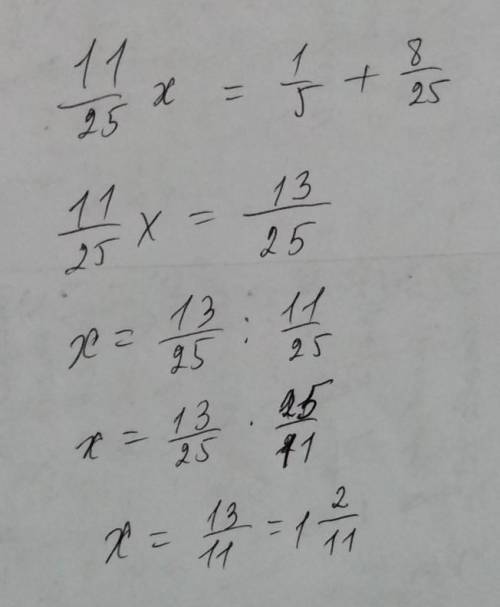 11/25 x = 1/5 + 8/25
11/25 x = 13/25
x = 13/25 : 11/25
x = 13/25 · 25/11
x = 13/11 = 1 2/11